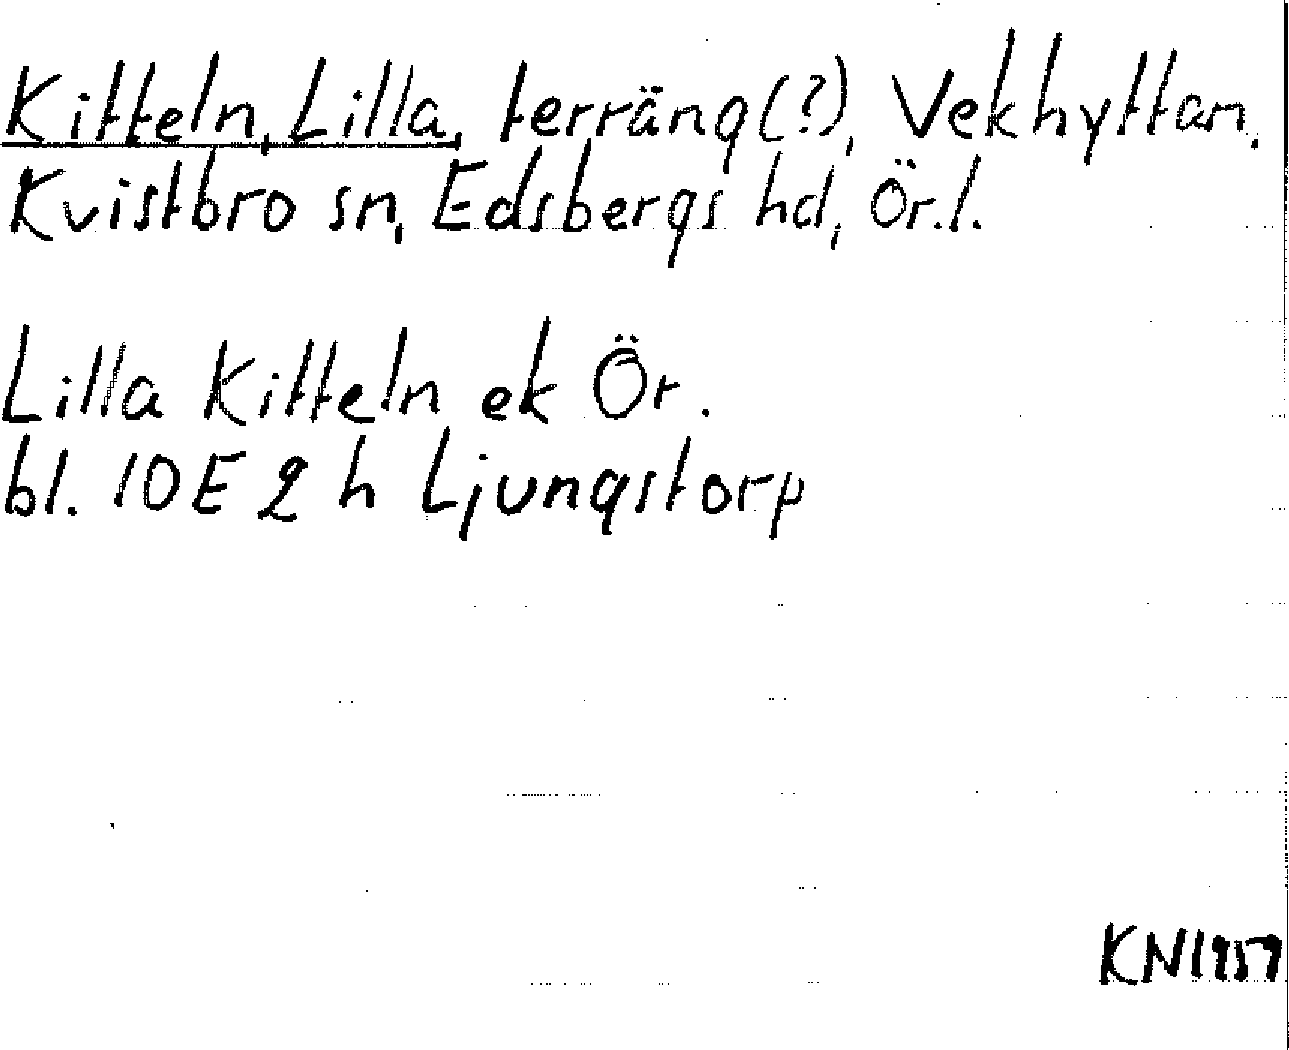 Kitteln, Lilla, terräng(?), Vekhyttan,
Kvistbro sn, Edsbergs hd, Ör.l.
Lilla Kitteln ek Ör.
bl. 10E 2 h Ljungstorp
KN1959